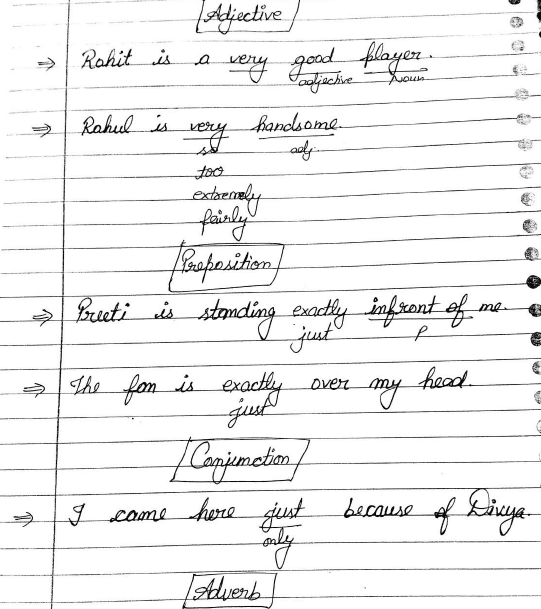 Adjective
⇒ Rohit is a very good player.
adjective Noun
⇒ Rahul is very handsome.
so adj.
too
extremely
fairly
Preposition
⇒ Preeti is standing exactly infront of me.
just P
⇒ The fan is exactly over my head.
just
Conjunction
⇒ I came here just because of Divya.
only
Adverb